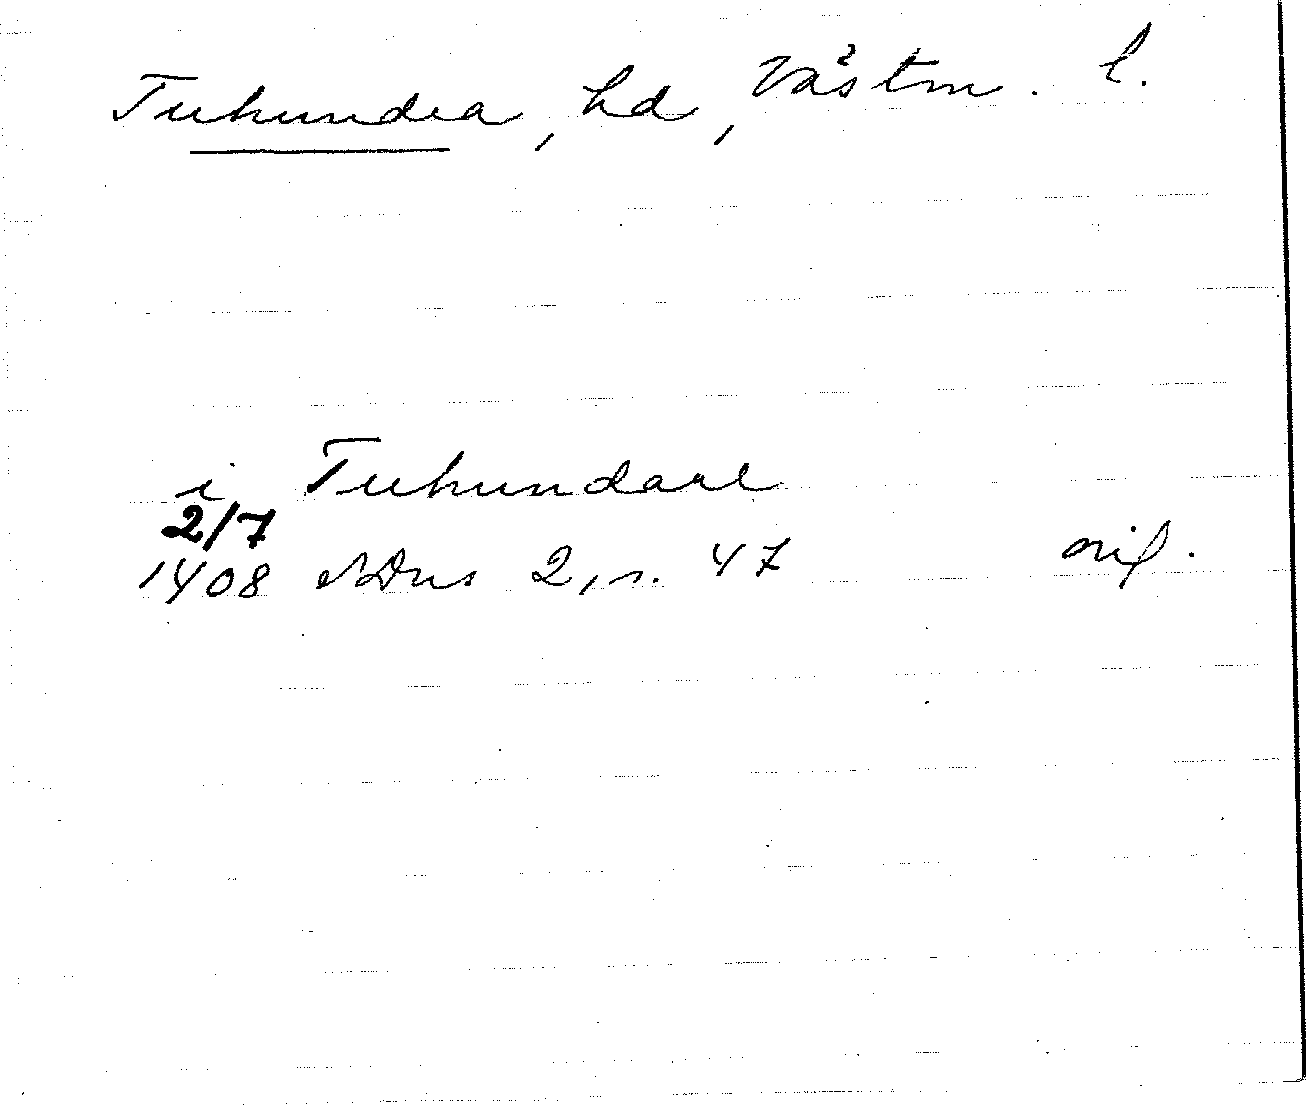 Tuhundra, hd, Västm. l.
i Tuhundare
2/7
1408 SDns 2, s. 47 orig.